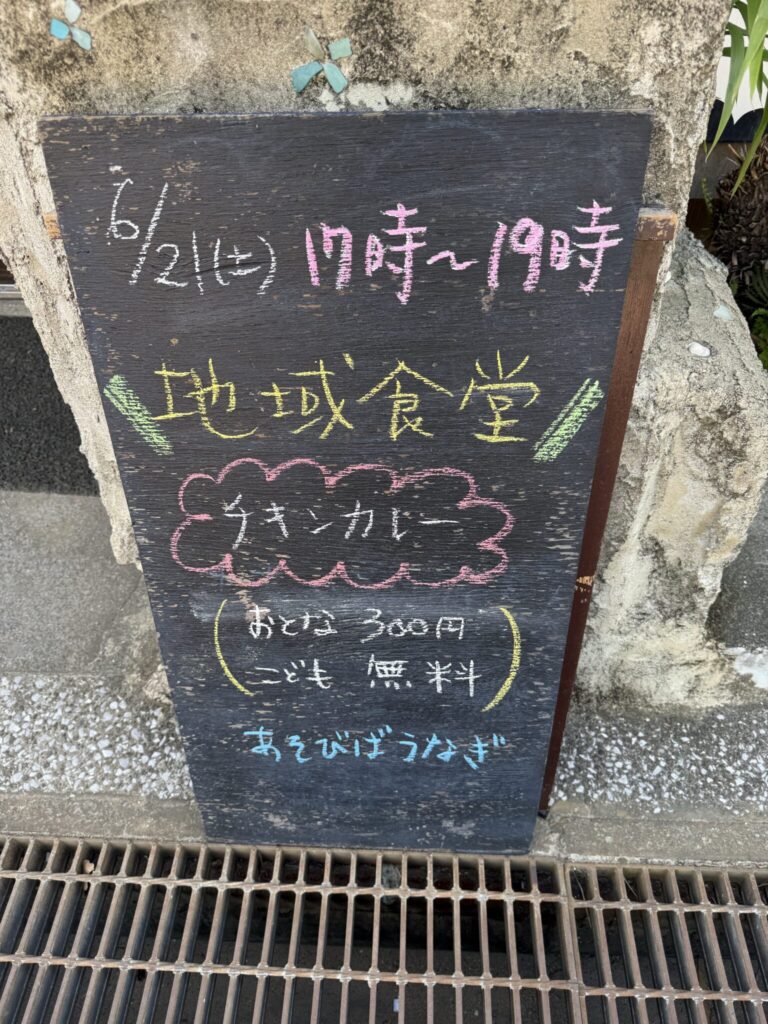 6/21(土) 17時～19時
地域食堂
チキンカレー
おとな 300円
こども 無料
あそびばうなぎ